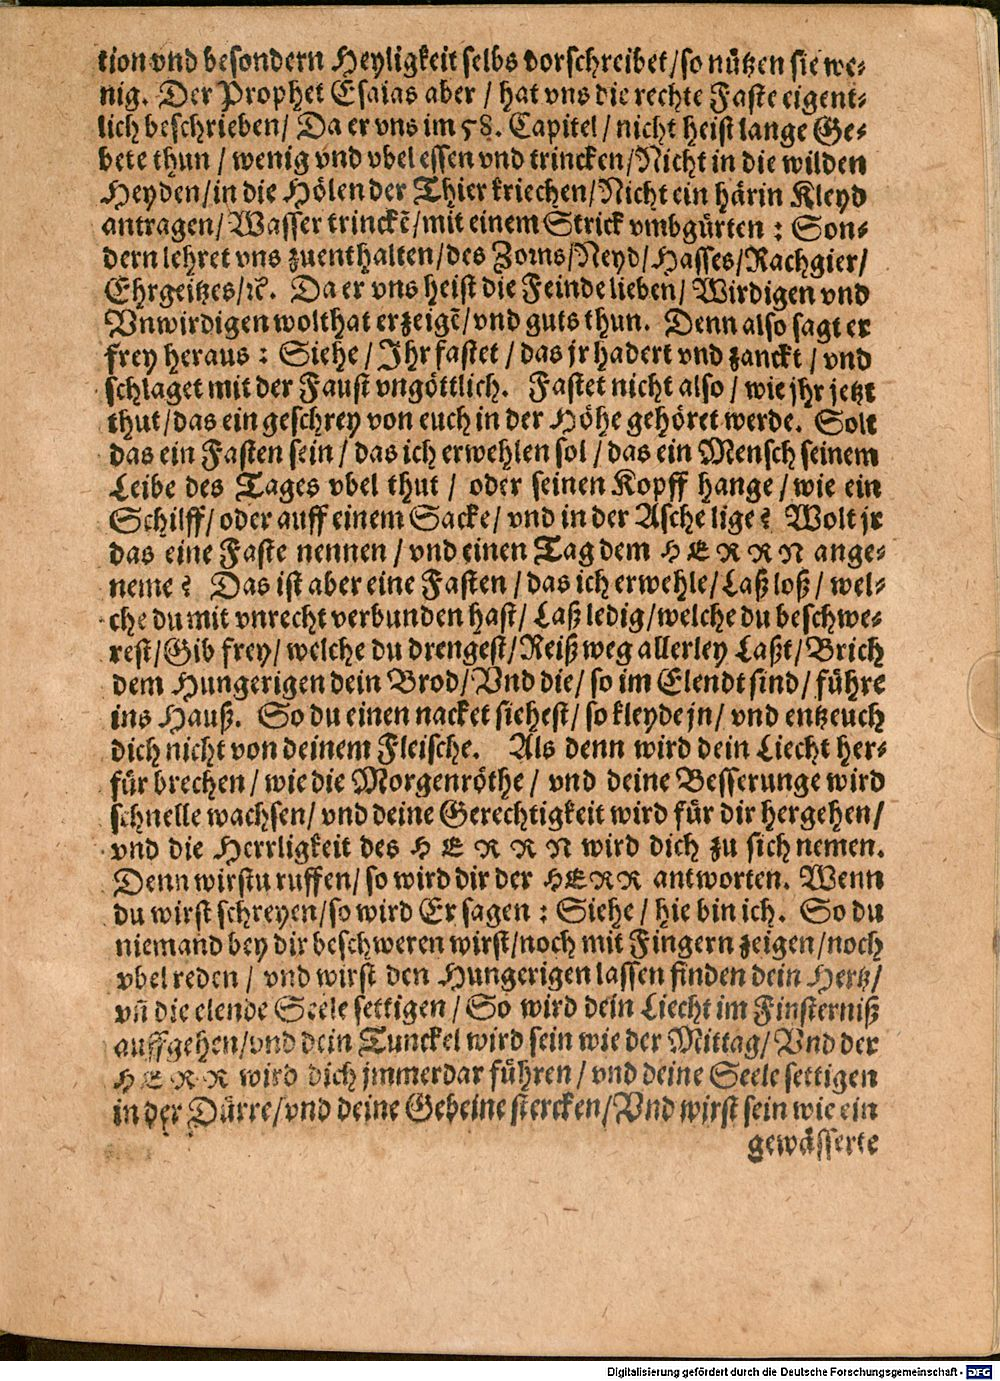 tion vnd besondern Heyligkeit selbs vorschreibet/so nützen sie we-
nig. Der Prophet Esaias aber / hat vns die rechte Faste eigent-
lich beschrieben/ Da er vns im 58. Capitel / nicht heist lange Ge-
bete thun / wenig vnd vbel essen vnd trincken/Nicht in die wilden
Heyden/in die Hölen der Thier kriechen/Nicht ein härin Kleyd
antragen/ Wasser trinckẽ/mit einem Strick vmbgürten : Son-
dern lehret vns zuenthalten/des Zorns/Neyd/Hasses/Rachgier/
Ehrgeitzes/ꝛc. Da er vns heist die Feinde lieben/ Wirdigen vnd
Vnwirdigen wolthat erzeigẽ/vnd guts thun. Denn also sagt er
frey heraus : Siehe / Jhr fastet / das jr hadert vnd zanckt / vnd
schlaget mit der Faust vngöttlich. Fastet nicht also / wie jhr jetzt
thut/das ein geschrey von euch in der Höhe gehöret werde. Solt
das ein Fasten sein / das ich erwehlen sol / das ein Mensch seinem
Leibe des Tages vbel thut / oder seinen Kopff hange / wie ein
Schilff/ oder auff einem Sacke/ vnd in der Asche lige? Wolt jr
das eine Faste nennen / vnd einen Tag dem HERRN ange-
neme? Das ist aber eine Fasten / das ich erwehle/ Laß loß / wel-
che du mit vnrecht verbunden hast/ Laß ledig/welche du beschwe-
rest/Gib frey/ welche du drengest/Reiß weg allerley Laßt/ Brich
dem Hungerigen dein Brod/ Vnd die/ so im Elendt sind/ führe
ins Hauß. So du einen nacket siehest/ so kleyde jn/ vnd entzeuch
dich nicht von deinem Fleische. Als denn wird dein Liecht her-
für brechen / wie die Morgenröthe / vnd deine Besserunge wird
schnelle wachsen/ vnd deine Gerechtigkeit wird für dir hergehen/
vnd die Herrligkeit des HERRN wird dich zu sich nemen.
Denn wirstu ruffen/ so wird dir der HERR antworten. Wenn
du wirst schreyen/so wird Er sagen : Siehe / hie bin ich. So du
niemand bey dir beschweren wirst/noch mit Fingern zeigen/noch
vbel reden / vnd wirst den Hungerigen lassen finden dein Hertz/
vñ die elende Seele settigen / So wird dein Liecht im Finsterniß
auffgehen/vnd dein Tunckel wird sein wie der Mittag/ Vnd der
HERR wird dich jmmerdar führen / vnd deine Seele settigen
in der Dürre/vnd deine Gebeine stercken/Vnd wirst sein wie ein
gewässerte
Digitalisierung gefördert durch die Deutsche Forschungsgemeinschaft - DFG